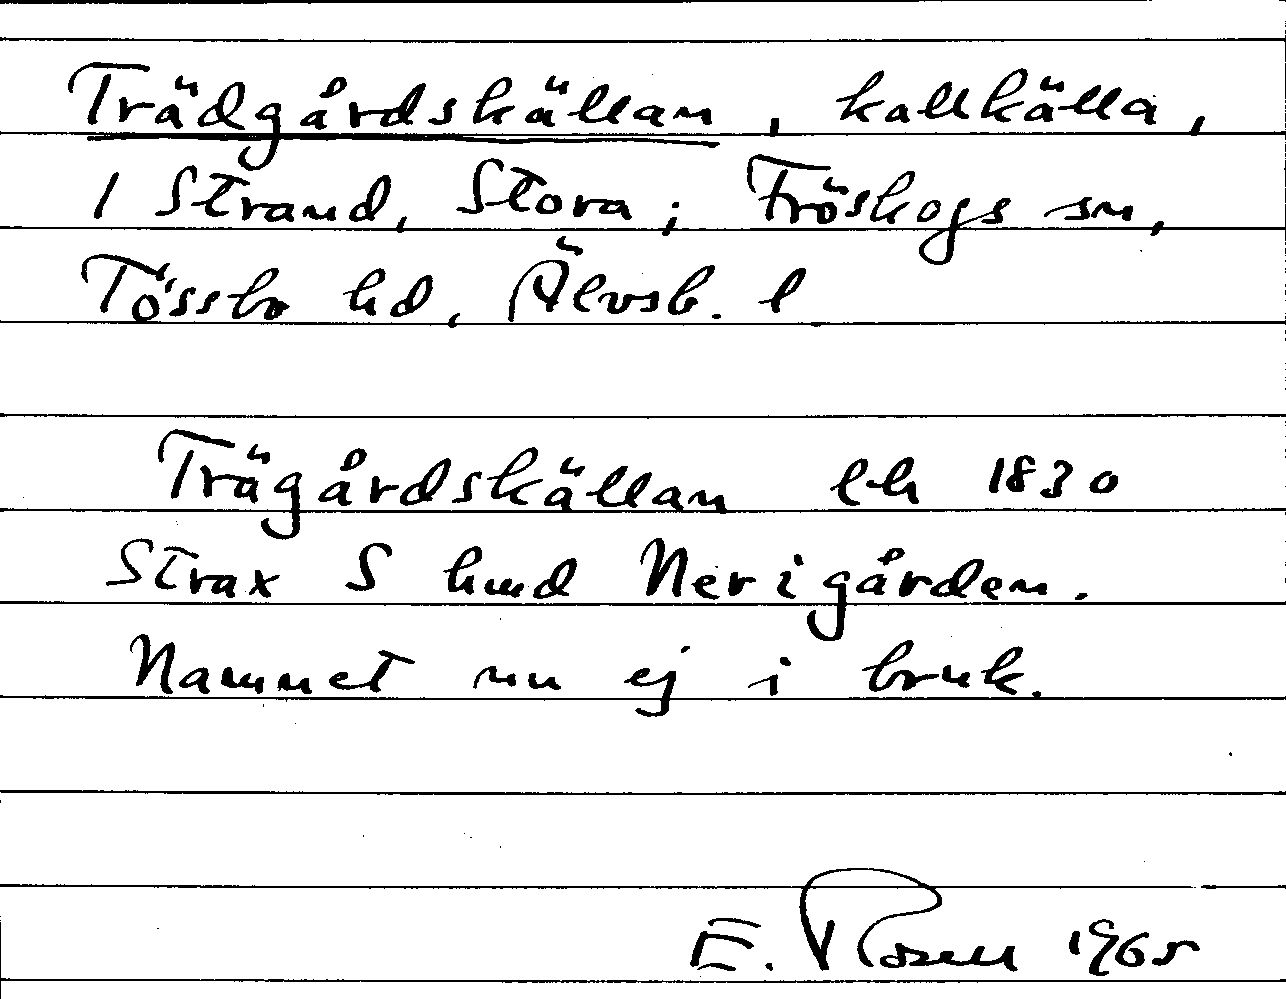 Trädgårdskällan, kallkälla,
1 Strand, Stora; Fröskogs sn,
Tössbo hd, Älvsb. l
Trägårdskällan lh 1830
Strax S hmd Nerigården.
Namnet nu ej i bruk.
E. Rosell 1965